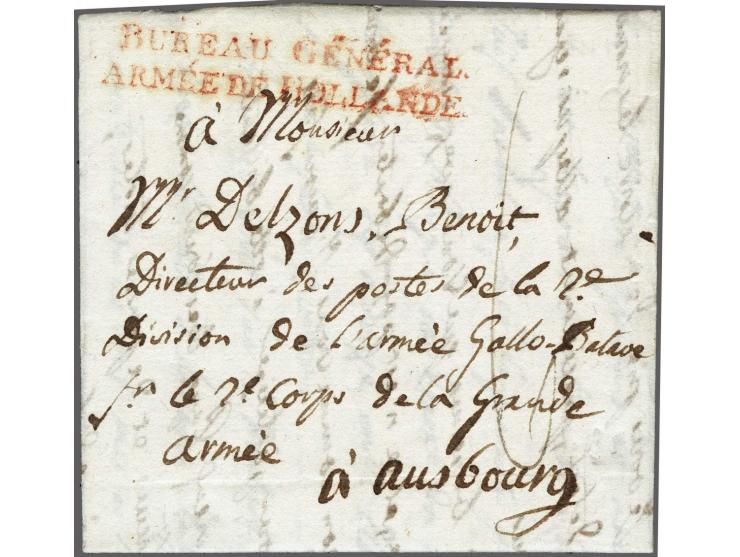 BUREAU GÉNÉRAL.
ARMÉE DE HOLLANDE.
à Monsieur
Mr Delzons, Benoit,
Directeur des postes de la 2e
Division de l'armée Gallo-Batave
le 2e Corps de la Grande
armée
à ausbourg